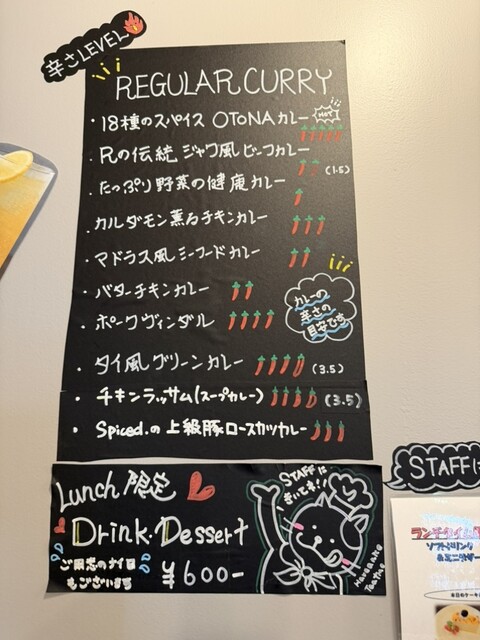 辛さLEVEL
REGULAR CURRY
・18種のスパイス OTONAカレー HOT
・Rの伝統 ジャワ風ビーフカレー
(1.5)
・たっぷり野菜の健康カレー
・カルダモン薫るチキンカレー
・マドラス風シーフードカレー
・バターチキンカレー
・ポークヴィンダル
カレーの
辛さの
目安です
・タイ風グリーンカレー (3.5)
・チキンラッサム(スープカレー) (3.5)
・Spiced.の上級豚ロースカツカレー
Lunch 限定
Drink・Dessert
ご用意のナイ日
もございます
¥600-
STAFFに
きいてネ!!
STAFFに
ランチタイム
ソフトドリンク